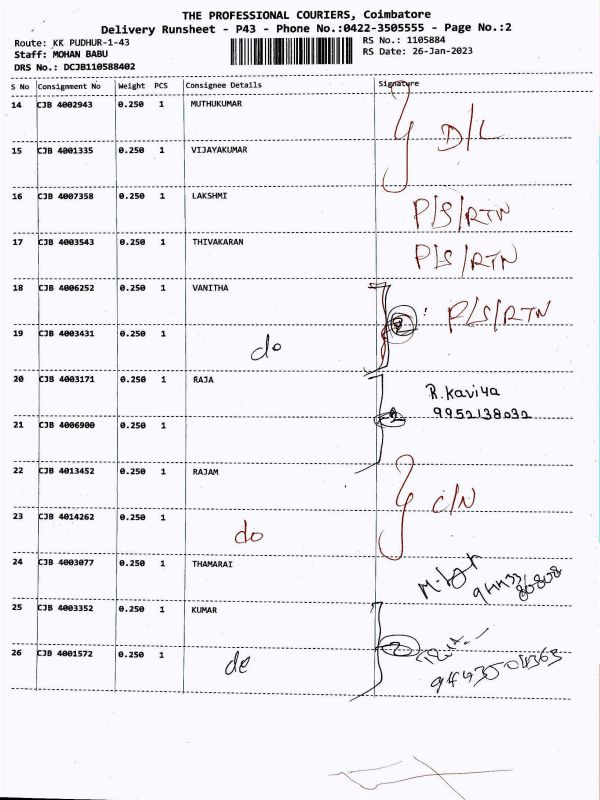 THE PROFESSIONAL COURIERS, Coimbatore
Delivery Runsheet - P43 - Phone No.:0422-3505555 - Page No.:2
Route: KK PUDHUR-1-43 RS No.: 1105884
Staff: MOHAN BABU RS Date: 26-Jan-2023
DRS No.: DCJB110588402
S No Consignment No Weight PCS Consignee Details Signature
14 CJB 4002943 0.250 1 MUTHUKUMAR
D/L
15 CJB 4001335 0.250 1 VIJAYAKUMAR
16 CJB 4007358 0.250 1 LAKSHMI P/S/RTN
17 CJB 4003543 0.250 1 THIVAKARAN P/S/RTN
18 CJB 4006252 0.250 1 VANITHA
2 P/S/RTN
19 CJB 4003431 0.250 1 do
20 CJB 4003171 0.250 1 RAJA R. Kaviya
2 9952138032
21 CJB 4006900 0.250 1
22 CJB 4013452 0.250 1 RAJAM
C/N
23 CJB 4014262 0.250 1 do
24 CJB 4003077 0.250 1 THAMARAI
25 CJB 4003352 0.250 1 KUMAR
2
26 CJB 4001572 0.250 1 do